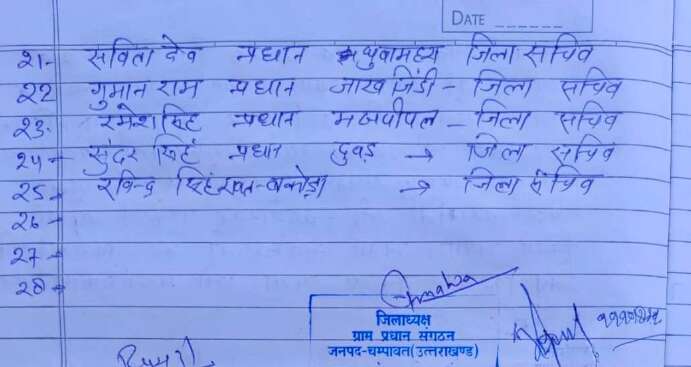 DATE
21- सविता देव प्रधान जिला सचिव
22 गुमान राम प्रधान जाख जिंडी - जिला सचिव
23. रमेश सिंह प्रधान - जिला सचिव
24 सुंदर सिंह प्रधान दुवड़ → जिला सचिव
25 रविन्द्र सिंह रावत-बकोड़ा → जिला सचिव
26
27
28
जिलाध्यक्ष
ग्राम प्रधान संगठन
जनपद-चम्पावत(उत्तराखण्ड)